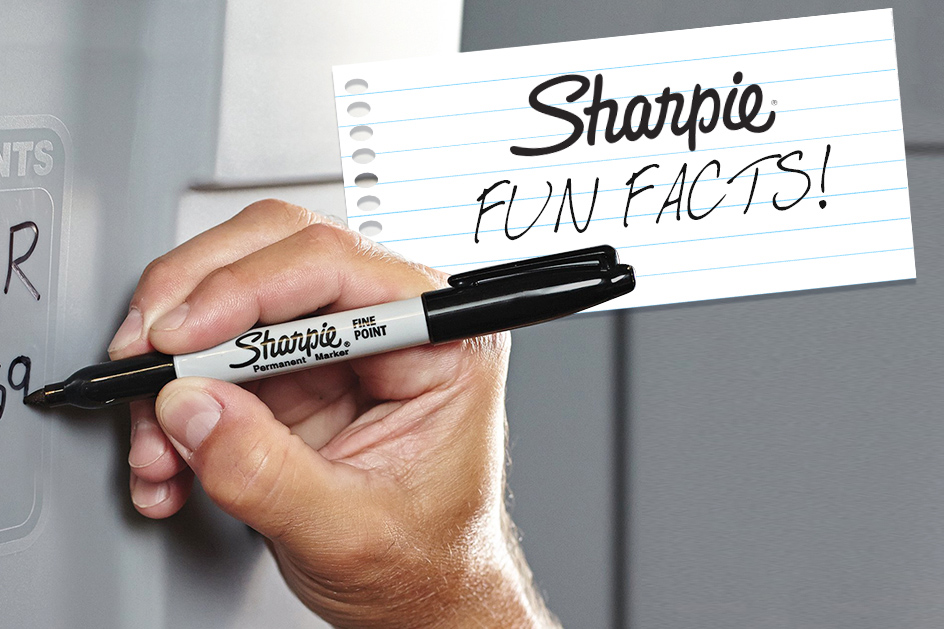 Sharpie®
FUN FACTS!
NTS
R
9
Sharpie® FINE POINT
Permanent Marker